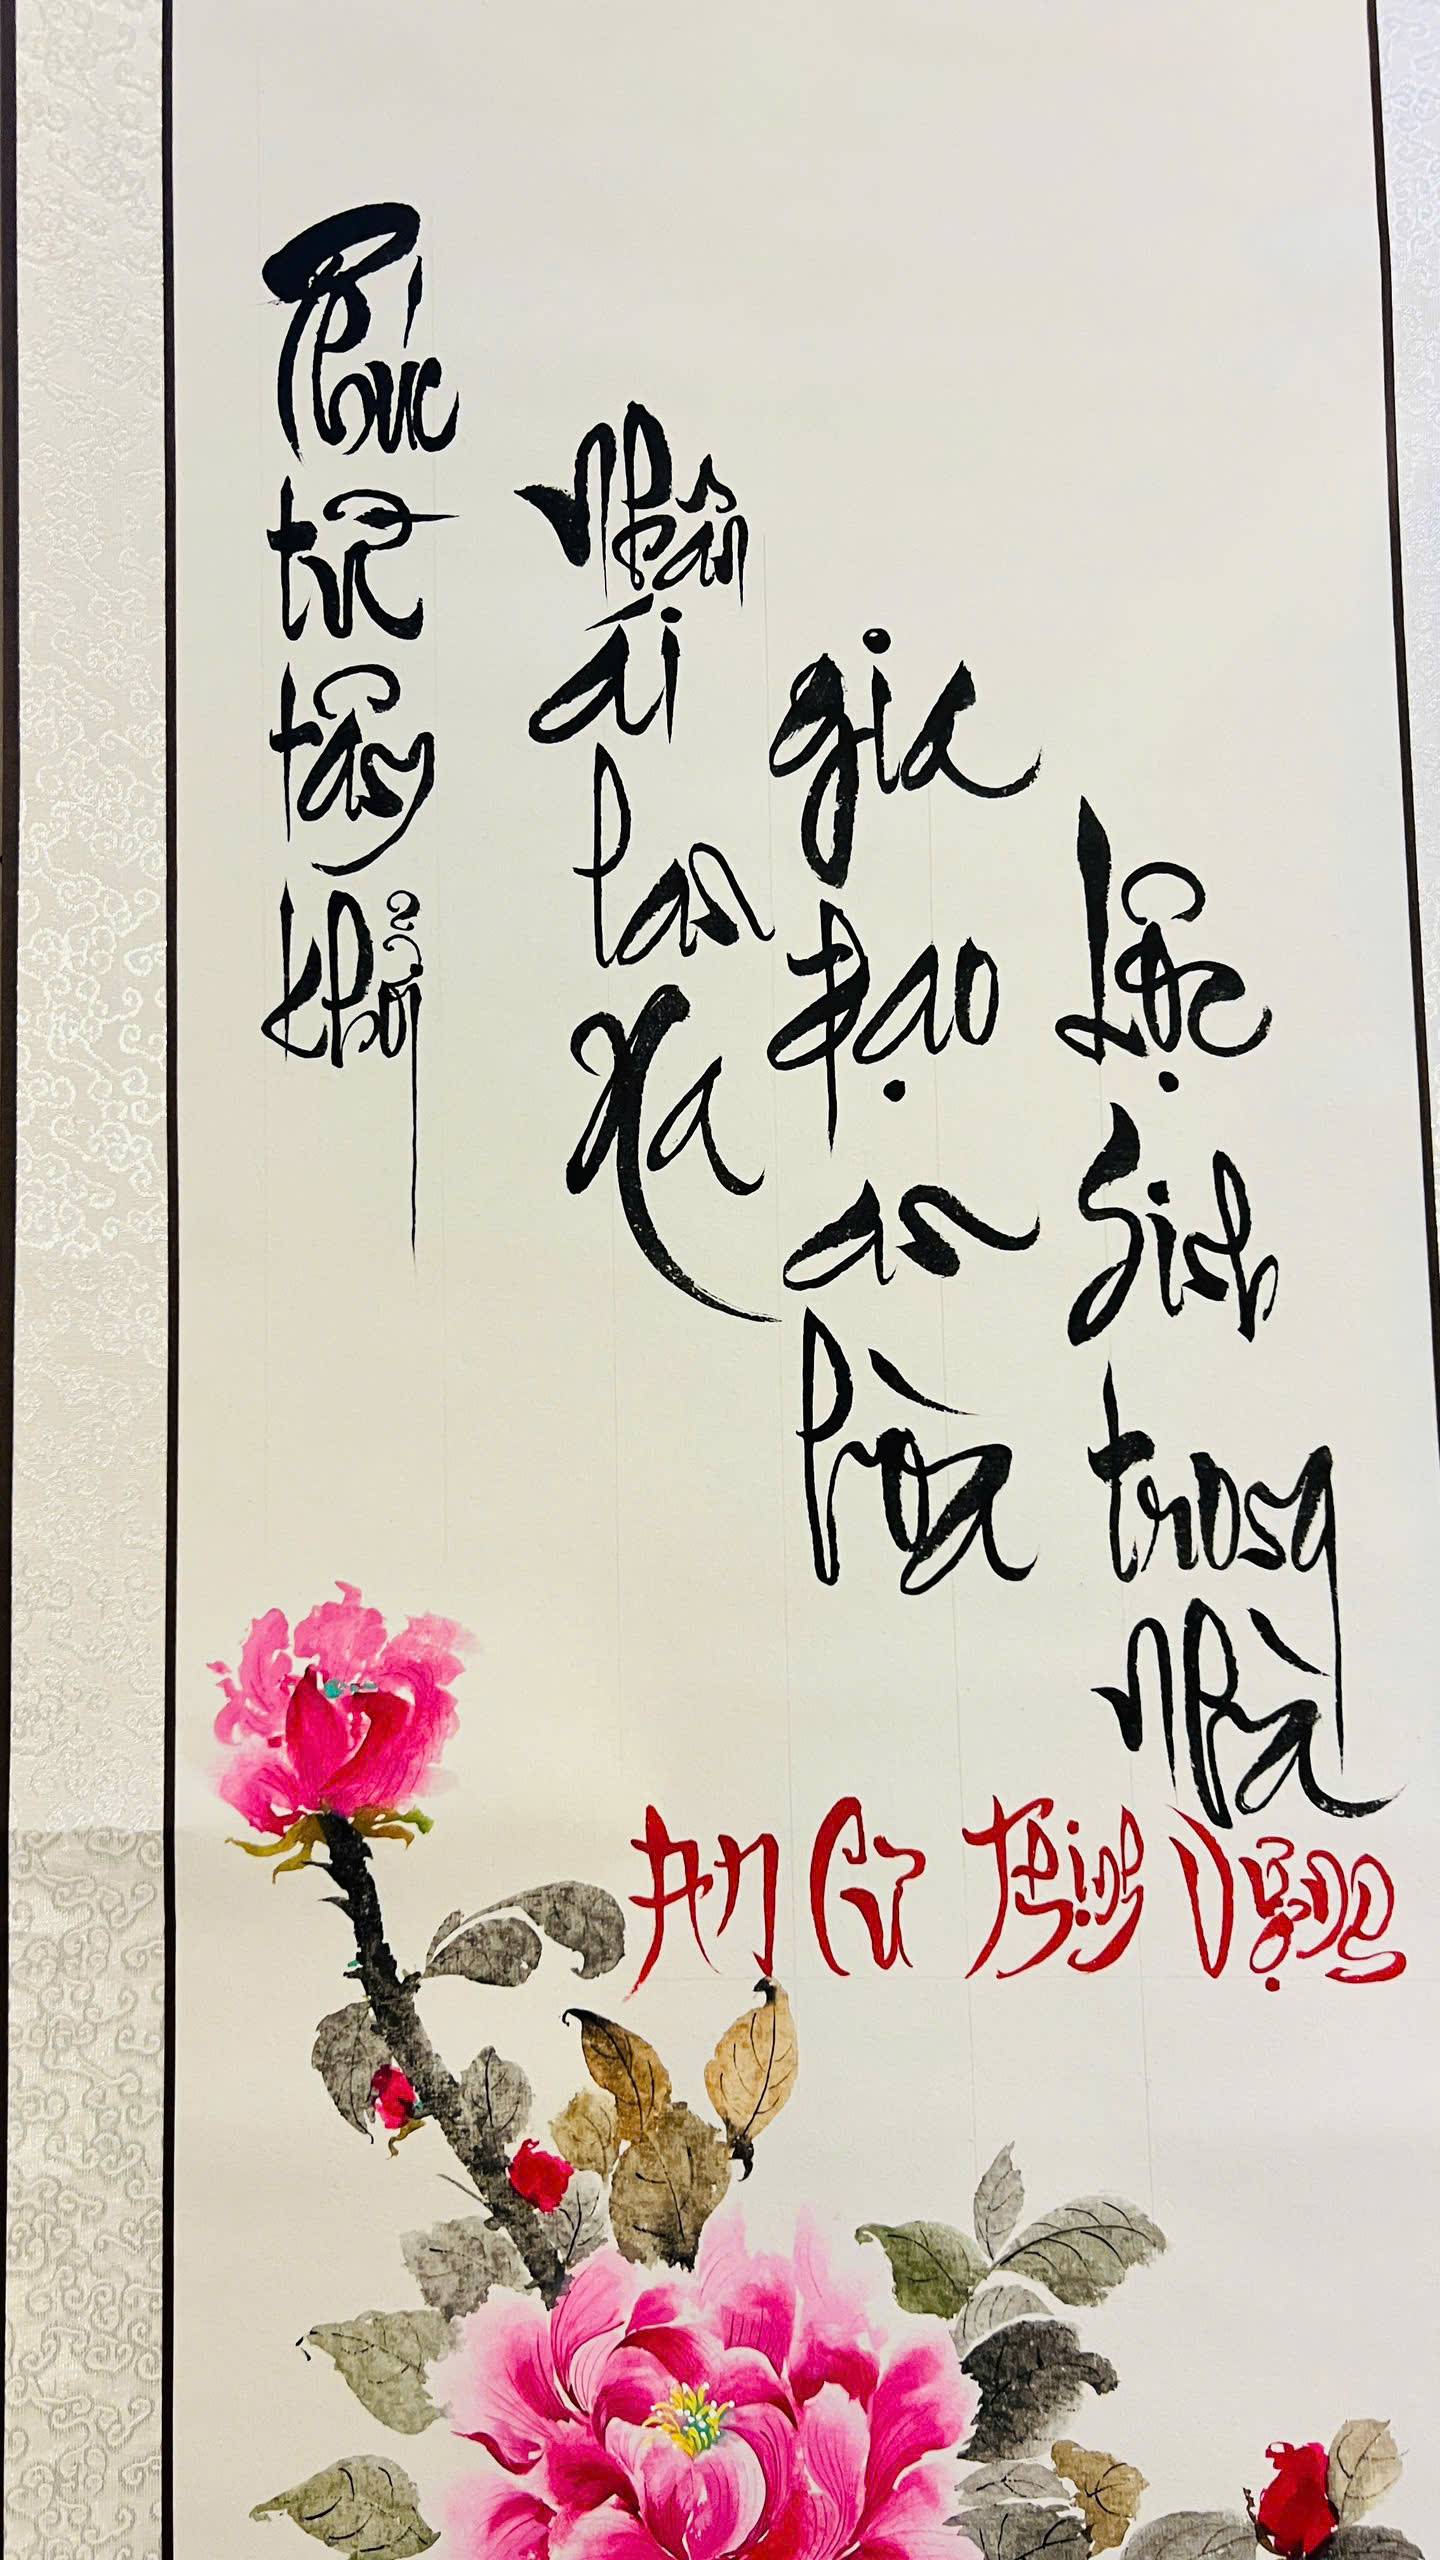 Phúc từ tâm khởi
Nhân ái lan xa
gia đạo an hòa
Lộc sinh trong nhà
An Cư Thịnh Vượng